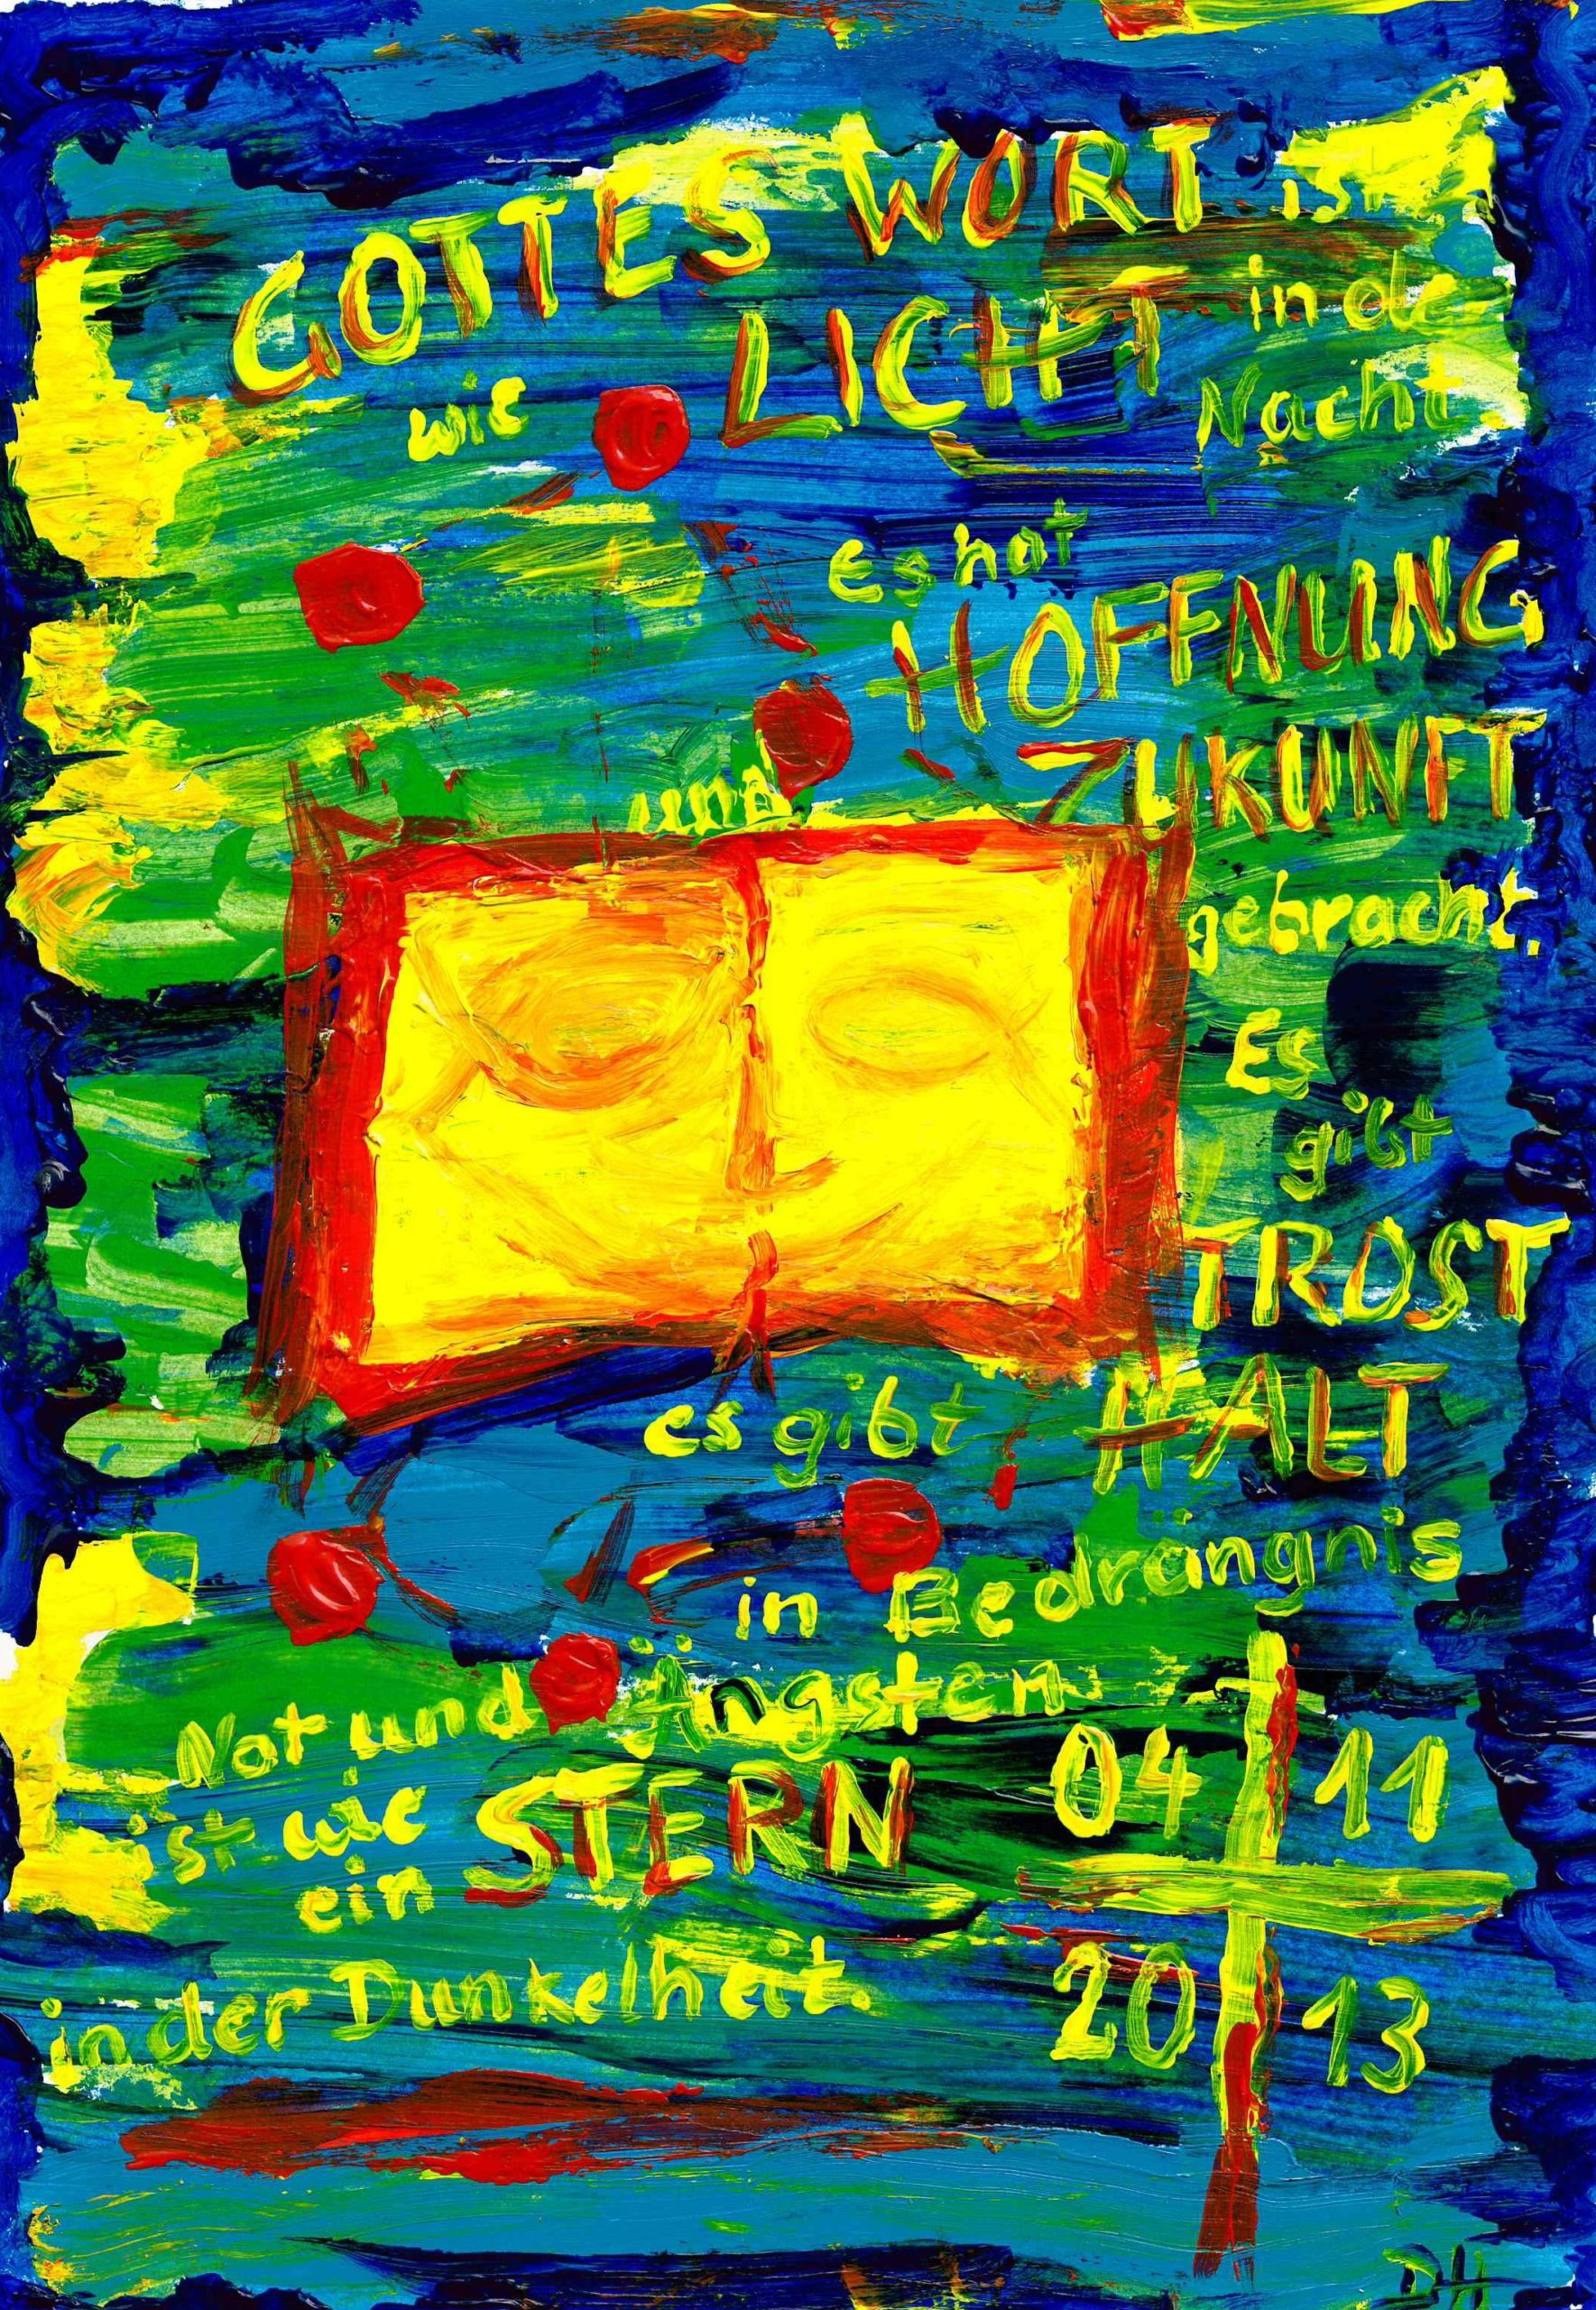 GOTTES WORT ist
wie LICHT in der
Nacht
Es hat
HOFFNUNG
und ZUKUNFT
gebracht.
Es
gibt
TROST
es gibt HALT
in Bedrängnis
Not und Ängsten
ist wie
ein STERN
in der Dunkelheit.
04 11
20 13
DH